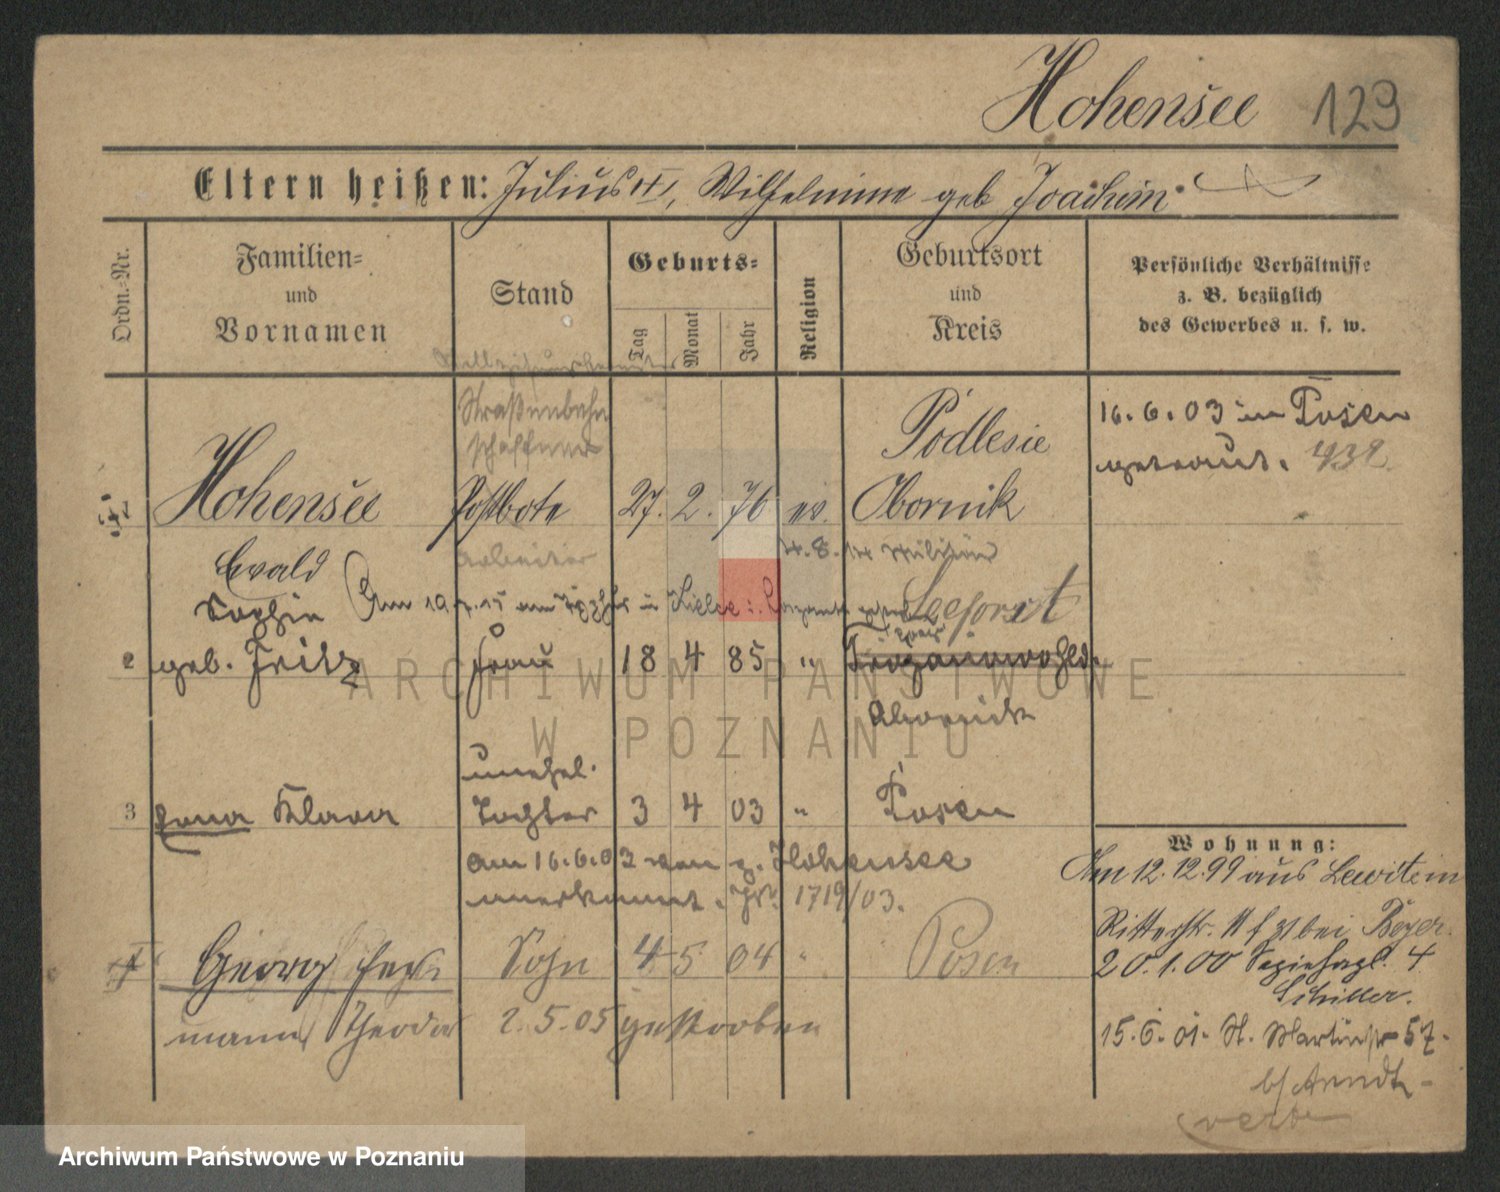 Hohensee 129
Eltern heißen: Julius, Wilhelmine geb Joachim
Ordn.-Nr.
Familien-
und
Vornamen
Stand
Geburts-
Tag
Monat
Jahr
Religion
Geburtsort
und
Kreis
Persönliche Verhältnisse
z. B. bezüglich
des Gewerbes u. s. w.
Straßenbahn
schaffner
Podlesie
16.6.03 in Posen
getraut.
1 Hohensee Postbote 27. 2. 76 ev. Obornik
Ewald
Arbeiter
4.8.14 Militär
Sophie
Am 19.7.15 in Kielce
Seeforst
2 geb. Fritz Frau 18 4 85 "
Obornick
unehel.
3 Klara Tochter 3 4 03 " Posen
am 16.6.03 von g. Hohensee
anerkannt. 1719/03.
4 Georg Sohn 4 5 04 " Posen
mann Theodor 2.5.05 gestorben
Wohnung:
Am 12.12.99 aus
Ritterstr. bei Beyer.
20.1.00 4
Schiller.
15.6.01. St. Martinstr 57
b/ Arndt
vert
ARCHIWUM PAŃSTWOWE
W POZNANIU
Archiwum Państwowe w Poznaniu